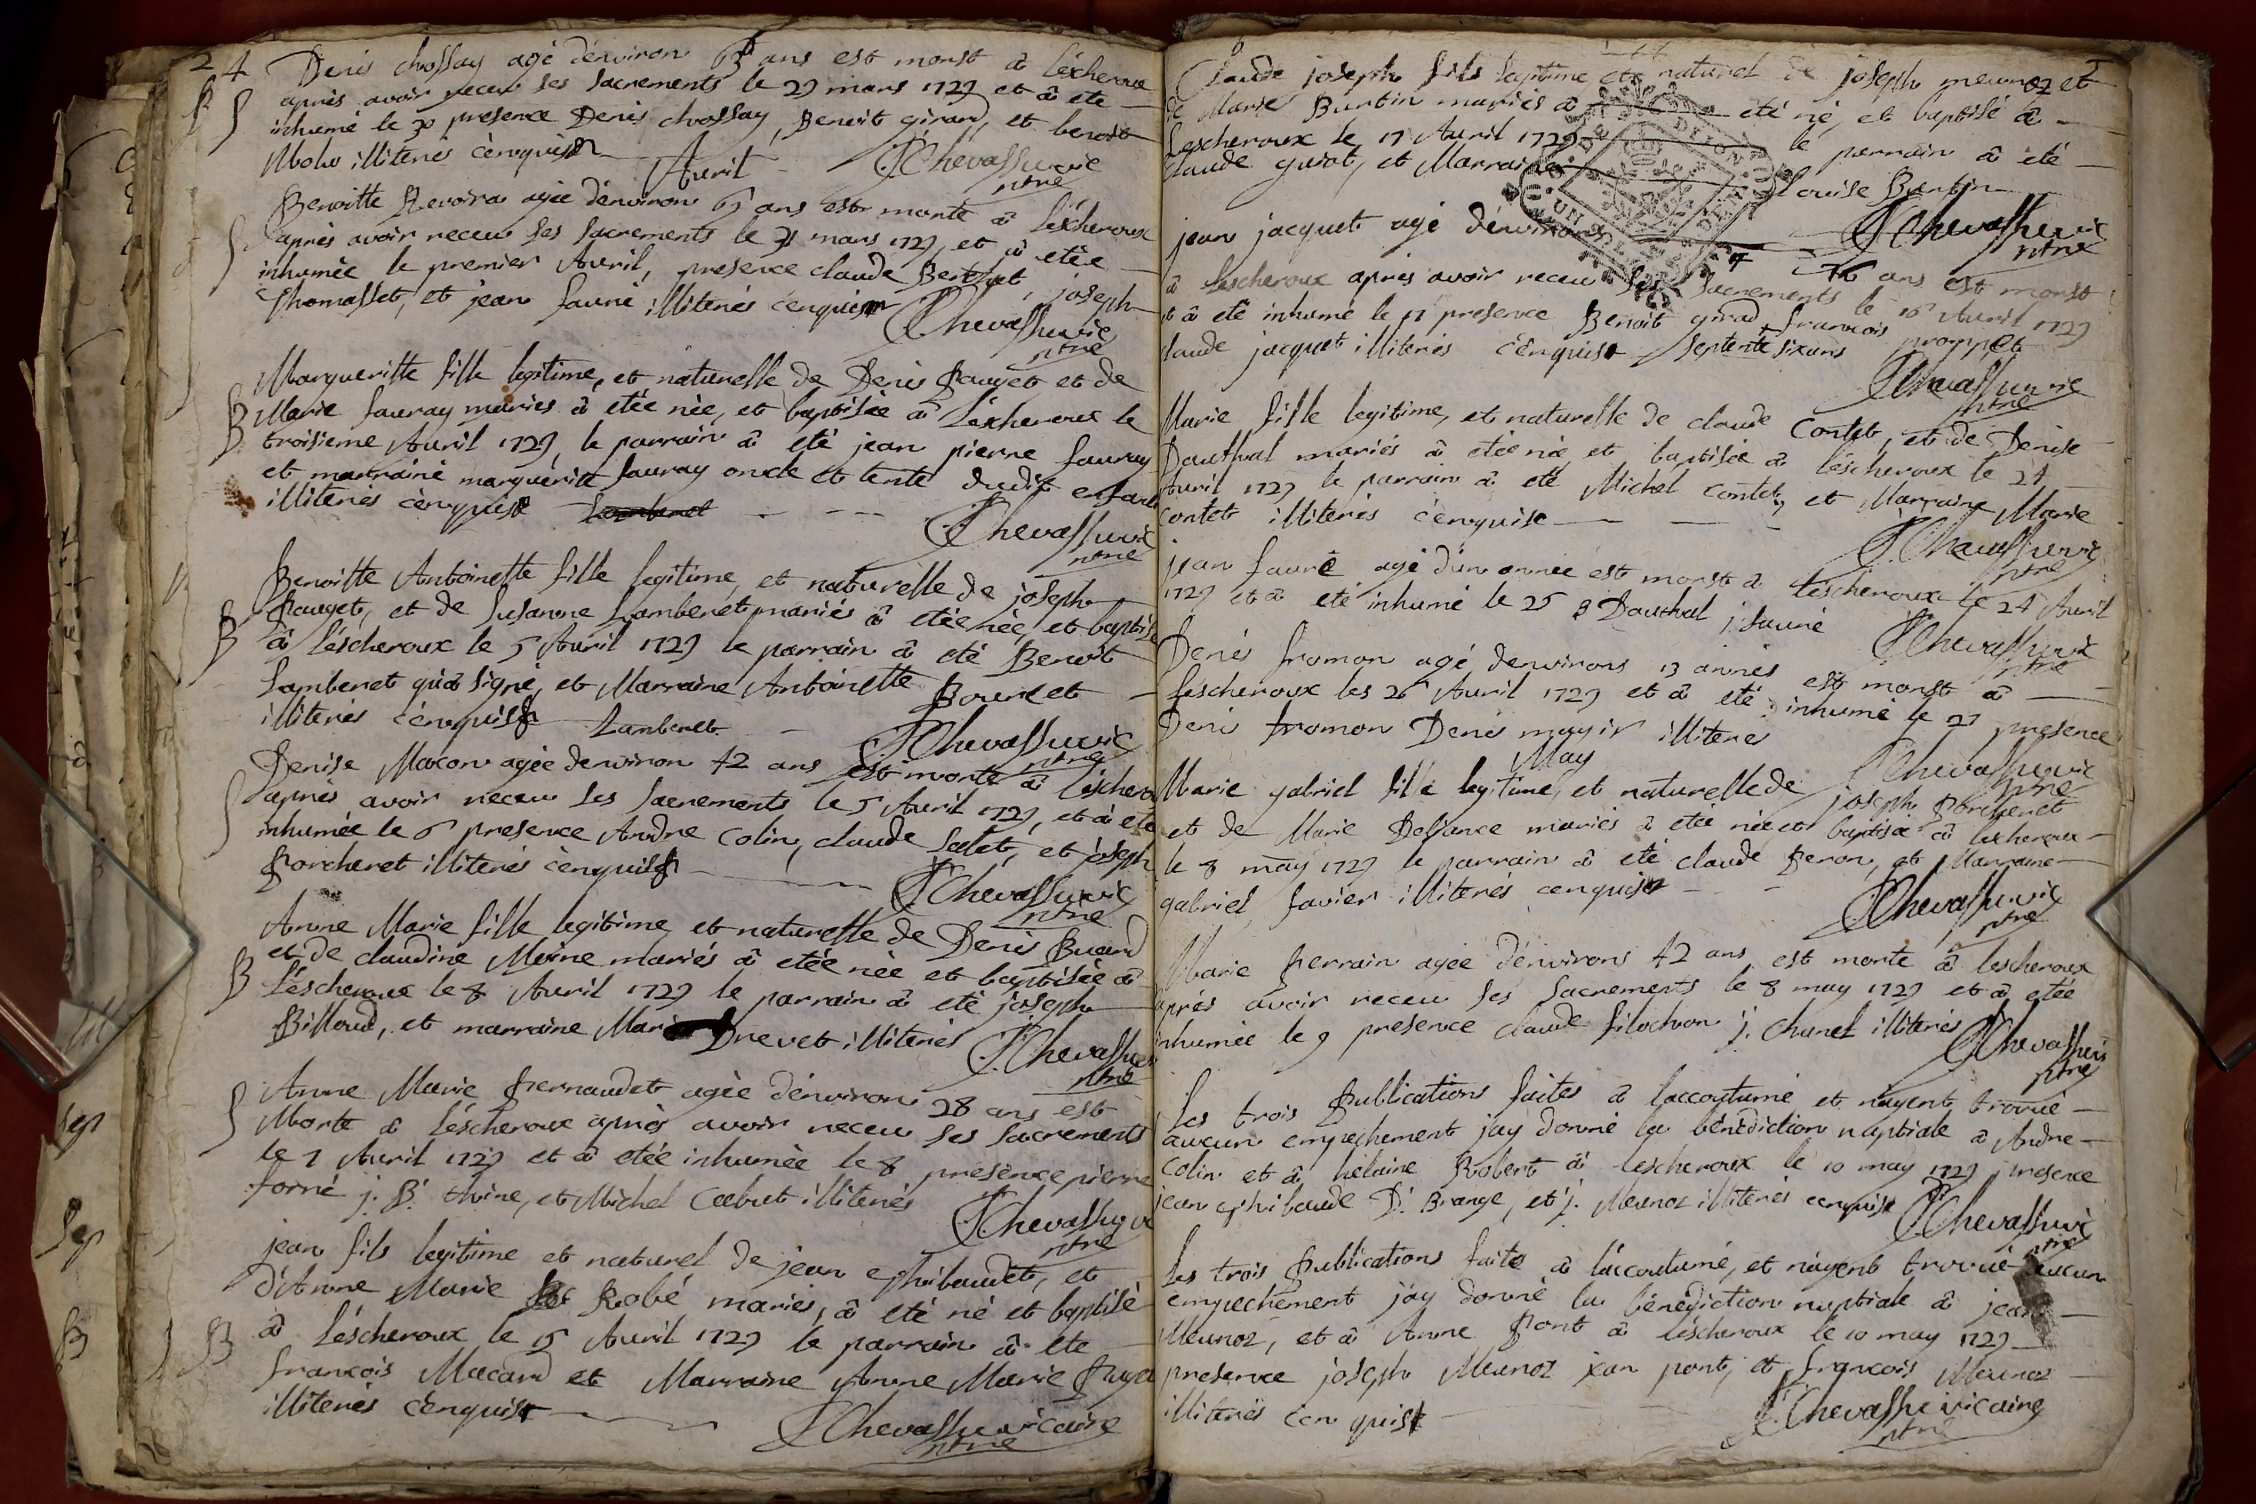 24
Denis chossay agé d'environ 63 ans est monst â léscheroux
aprés avoir receu ses sacrements le 29 mars 1729 et â eté
inhumé le 30 presence Denis chossay, Benoit girard, et benoit
illiterés cénquist
Chevassu vic
ptre
Avril
Benoitte Revoira agée dénviron 65 ans est monte â léscheroux
aprés avoir receu ses sacrements le 31 mars 1729, et â etée
inhumée le premier Avril, presence claude Berthet, joseph
Thomasset, et jean fauré illiterés cénquist
Chevassu vic
ptre
Margueritte fille legitime, et naturelle de Denis Pauget et de
B Marie fauray mariés â etée née, et baptisée â léscheroux le
troisieme Avril 1729, le parrain â eté jean pierre fauray
et marraine marguéritte fauray oncle et tente dudit enfant
illiterés cénquist
Chevassu vic
ptre
Benoitte Antoinette fille legitime, et naturelle de joseph
B Pauget, et de Susanne Lamberet mariés â etée née, et baptisé
â léscheroux le 5 Avril 1729 le parrain â eté Benoit
Lamberet qui â signé, et Marraine Antoinette Bourcet
illiterés cénquist Lamberet
Chevassu vic
ptre
Denise Macon agée denviron 42 ans est monte â léschero
aprés avoir receu ses sacrements le 5 Avril 1729, et â eté
inhumée le 6 presence Andre Colin, claude Salet, et joseph
Porcheret illiterés cénquist
Chevassu vic
ptre
Anne Marie fille legitime et naturelle de Denis Buard
B et de claudine Moine mariés â etée née et baptisée â
Léscheroux le 8 Avril 1729 le parrain â eté joseph
Billoud, et marraine Marie Drevet illiterés
Chevassu
ptre
Anne Marie Pernaudet agée dénviron 28 ans est
Morte â Léscheroux aprés avoir receu ses sacrements
le 7 Avril 1729 et â etée inhumée le 8 presence pierre
forné j. B. thine, et Michel Cabut illiterés
Chevassu vic
ptre
jean fils legitime et naturel de jean Thibaudet, et
d'Anne Marie Robé mariés, â eté né et baptisé
B â Léscheroux le 15 Avril 1729 le parrain â eté
francois Macard et Marraine Anne Marie
illiterés cénquist
Chevassu vicaire
ptre
Claude joseph fils legitime et naturel de joseph meunoz et
de Marie Burtin mariés â eté né, et baptisé â
Lescheroux le 17 Avril 1729 le parrain â eté
claude guiot, et Marraine Louise Burtin
Chevassu vic
ptre
jean jacquet agé dénvirons 76 ans est monst
â Lescheroux aprés avoir receu ses sacrements le 16 Avril 1729
et â eté inhumé le 17 presence Benoit girad, francois proppet
claude jacquet illiterés cénquist septente sixans
Chevassu vic
ptre
Marie fille legitime, et naturelle de claude Contet, et de Denise
Dauthal mariés â etée née et baptisée â léscheroux le 24
Avril 1729 le parrain â eté Michel Contet, et Marraine Marie
Contet illiterés cénquist
Chevassu vic
ptre
jean fauré agé d'un année est monst â Léscheroux le 24 Avril
1729 et â eté inhumé le 25 Dauthal j. fauré
Chevassu vic
ptre
Denis fromon agé denvirons 13 annés est monst â
lescheroux les 26 Avril 1729 et â eté inhumé le 27 presence
Denis fromon Denis mayir illiterés
Chevassu vic
ptre
May
Marie gabriel fille legitime, et naturelle de joseph Porcheret
et de Marie Defiance mariés â etée née et baptisée â lescheroux
le 8 may 1729 le parrain â eté claude Peron, et Marraine
gabriel favier illiterés cenquist
Chevassu vic
ptre
Marie Perrain agée dénvirons 42 ans est monte â lescheroux
aprés avoir receu ses sacrements le 8 may 1729 et â etée
inhumée le 9 presence claude filochon j. Chanel illiterés
Chevassu vic
ptre
Les trois Publications faites â laccoutumé et n'ayent trouvé
aucun empechement j'ay donné la bénédiction nuptiale â Andre
Colin et â hélaine Robert â lescheroux le 10 may 1729 presence
jean Thibaude D. Brange, et j. Meunoz illiterés cenquist
Chevassu vic
ptre
Les trois Publications faites â láccoutumé, et n'ayent trouvé aucun
empechement j'ay donné la bénédiction nuptiale â jean
Meunoz, et â Anne Pont â léscheroux le 10 may 1729
presence joseph Meunoz jean pont, et francois Meunoz
illiterés cenquist
Chevassu vicaire
ptre